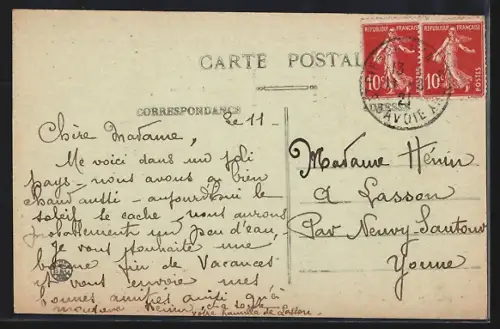 CARTE POSTALE
CORRESPONDANCE
ADRESSE
REPUBLIQUE FRANÇAISE
10c
POSTES
REPUBLIQUE FRANÇAISE
10c
POSTES
13
21
SAVOIE
Le 11 -
Chère Madame,
Me voici dans un joli
pays - nous avons eu bien
chaud aussi - aujourd'hui le
soleil se cache - nous aurons
probablement un peu d'eau,
Je vous souhaite une
bonne fin de Vacances
et vous envoie mes
bonnes amitiés ainsi qu'à
monsieur Hénin et à toute
votre famille de Lasson.
Madame Hénin
à Lasson
Par Neuvy-Sautour
Yonne